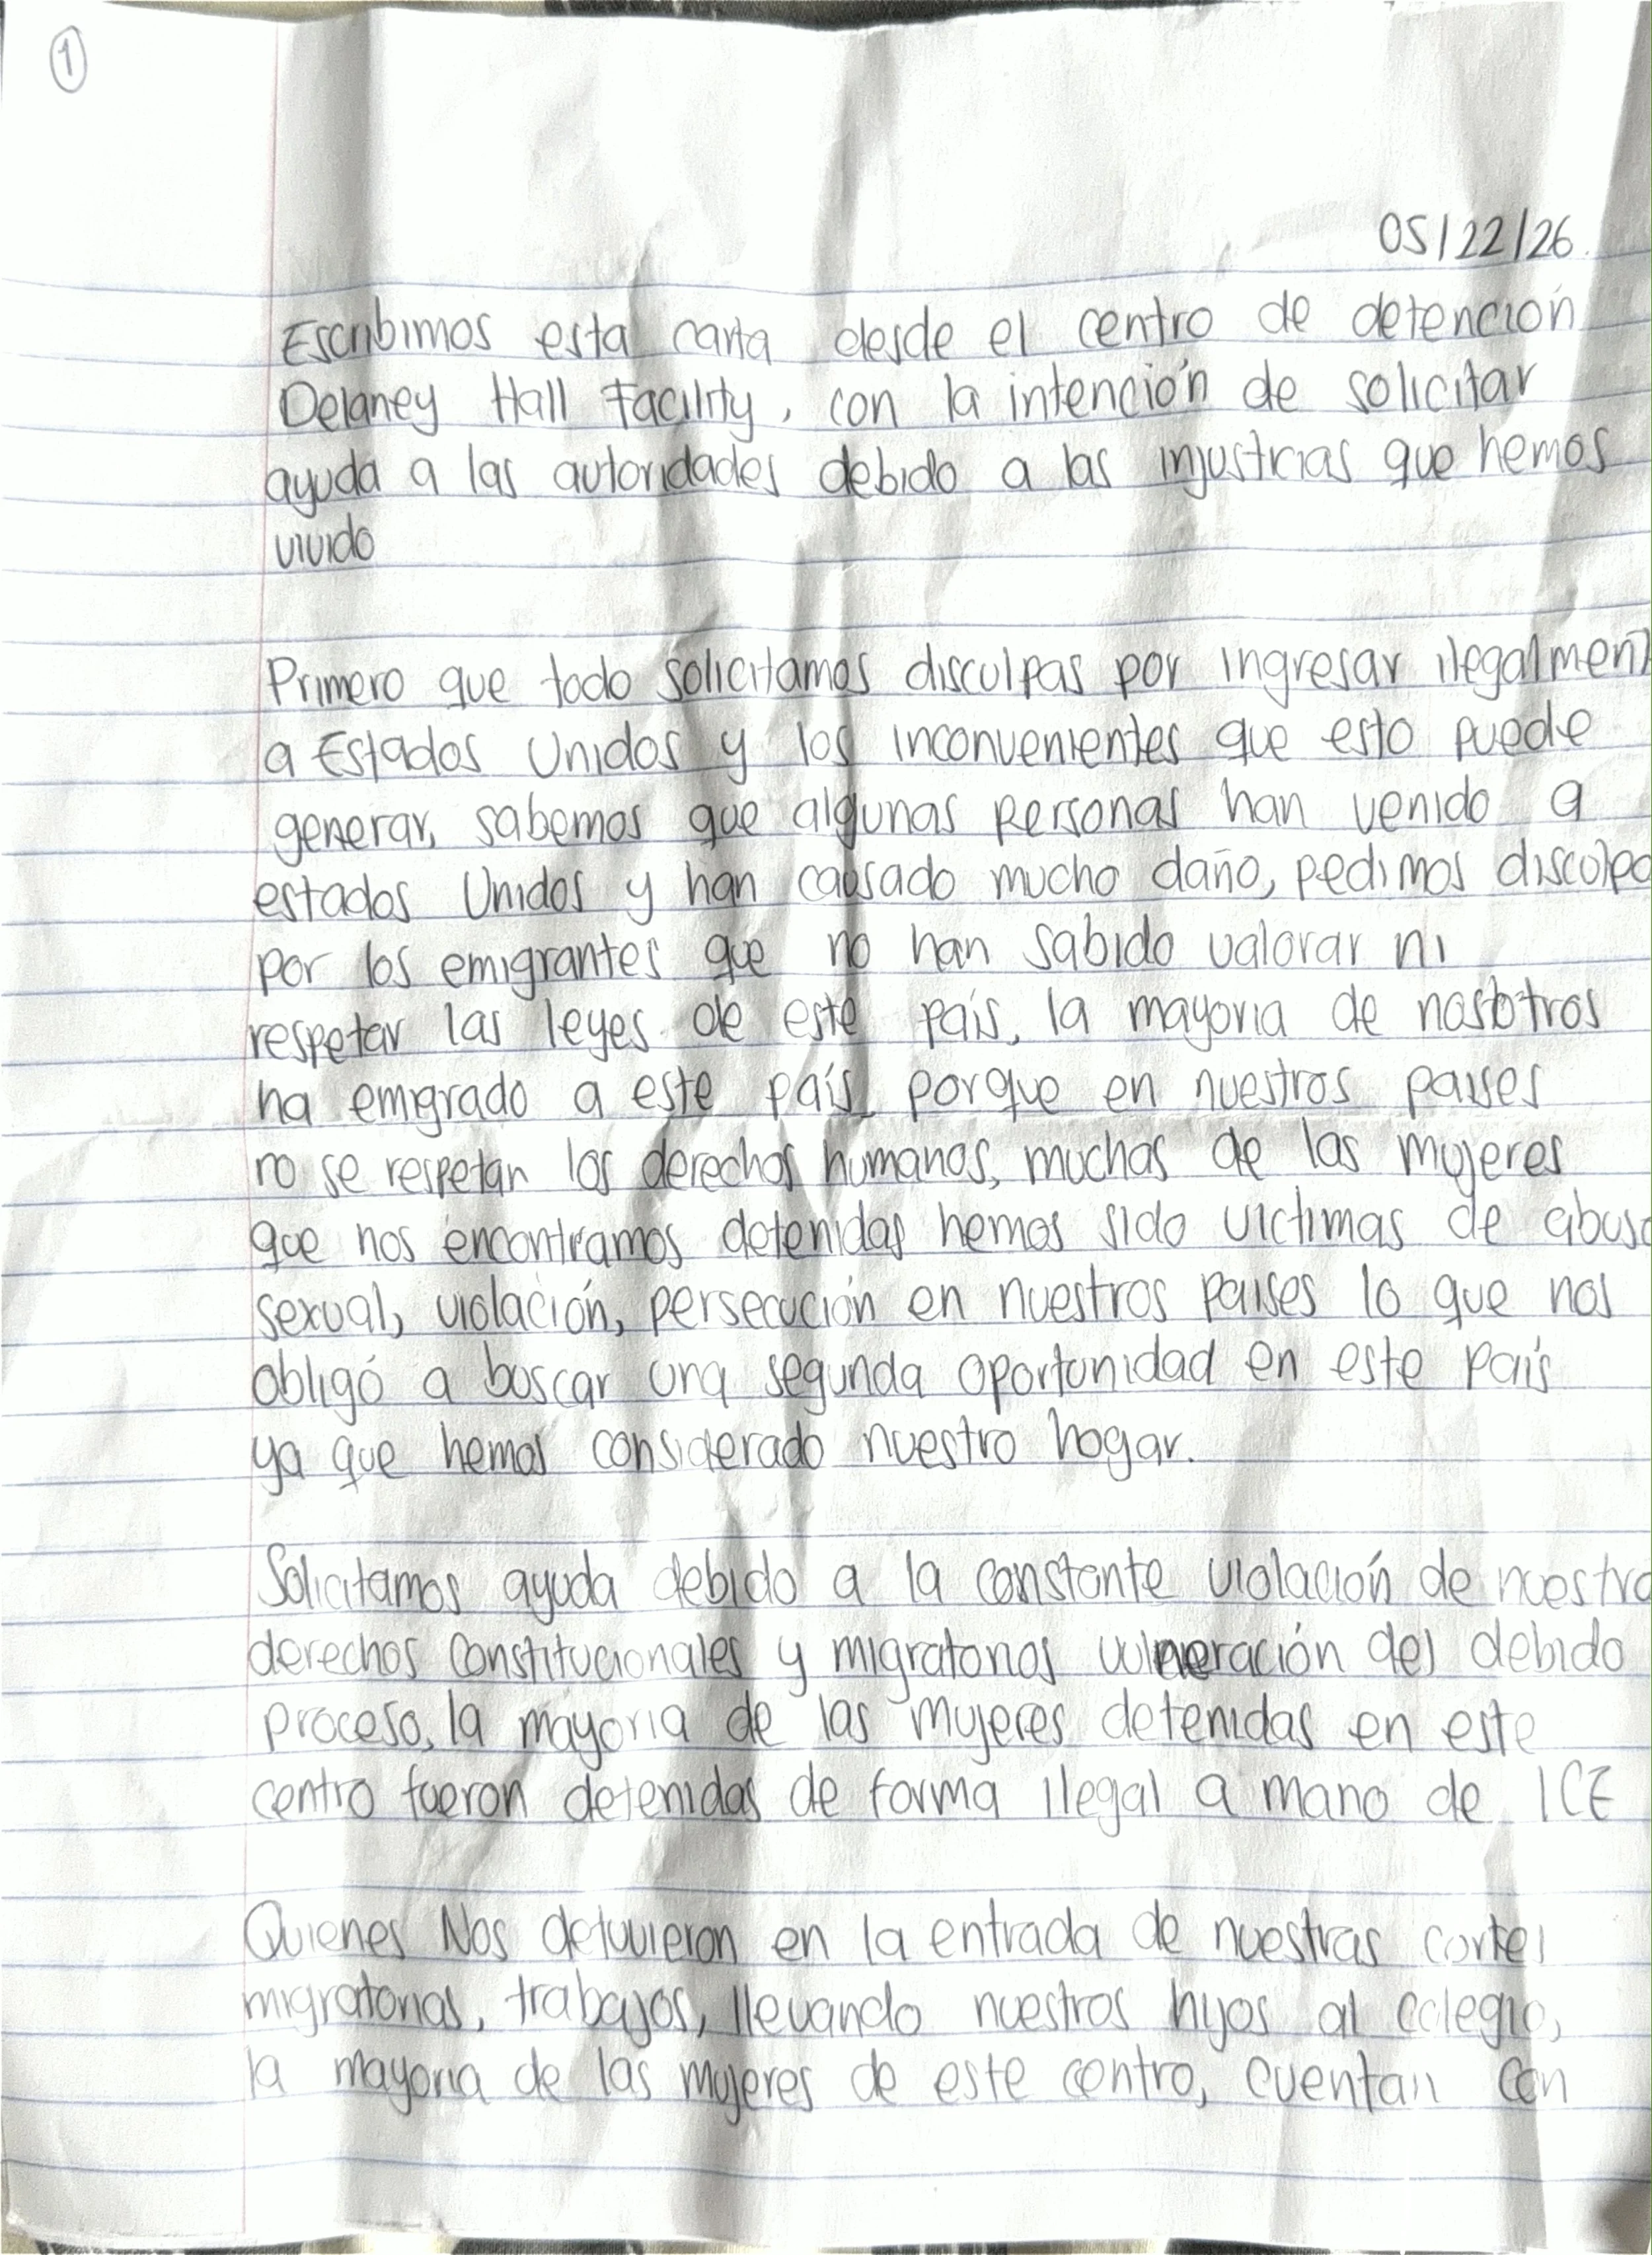 1
05/22/26.
Escribimos esta carta desde el centro de detención
Delaney Hall Facility, con la intención de solicitar
ayuda a las autoridades debido a las injusticias que hemos
vivido
Primero que todo solicitamos disculpas por ingresar ilegalment
a Estados Unidos y los inconvenientes que esto puede
generar, sabemos que algunas personas han venido a
estados Unidos y han causado mucho daño, pedimos disculpa
por los emigrantes que no han sabido valorar ni
respetar las leyes de este país, la mayoria de nosotros
ha emigrado a este país porque en nuestros paises
no se respetan los derechos humanos, muchas de las mujeres
que nos encontramos detenidas hemos sido victimas de abuso
sexual, violación, persecución en nuestros paises lo que nos
obligó a buscar una segunda oportunidad en este país
ya que hemos considerado nuestro hogar.
Solicitamos ayuda debido a la constante violación de nuestro
derechos constitucionales y migratorios vulneración del debido
proceso, la mayoria de las mujeres detenidas en este
centro fueron detenidas de forma ilegal a mano de ICE
Quienes Nos detuvieron en la entrada de nuestras cortes
migratorias, trabajos, llevando nuestros hijos al colegio,
la mayoria de las mujeres de este centro, cuentan con